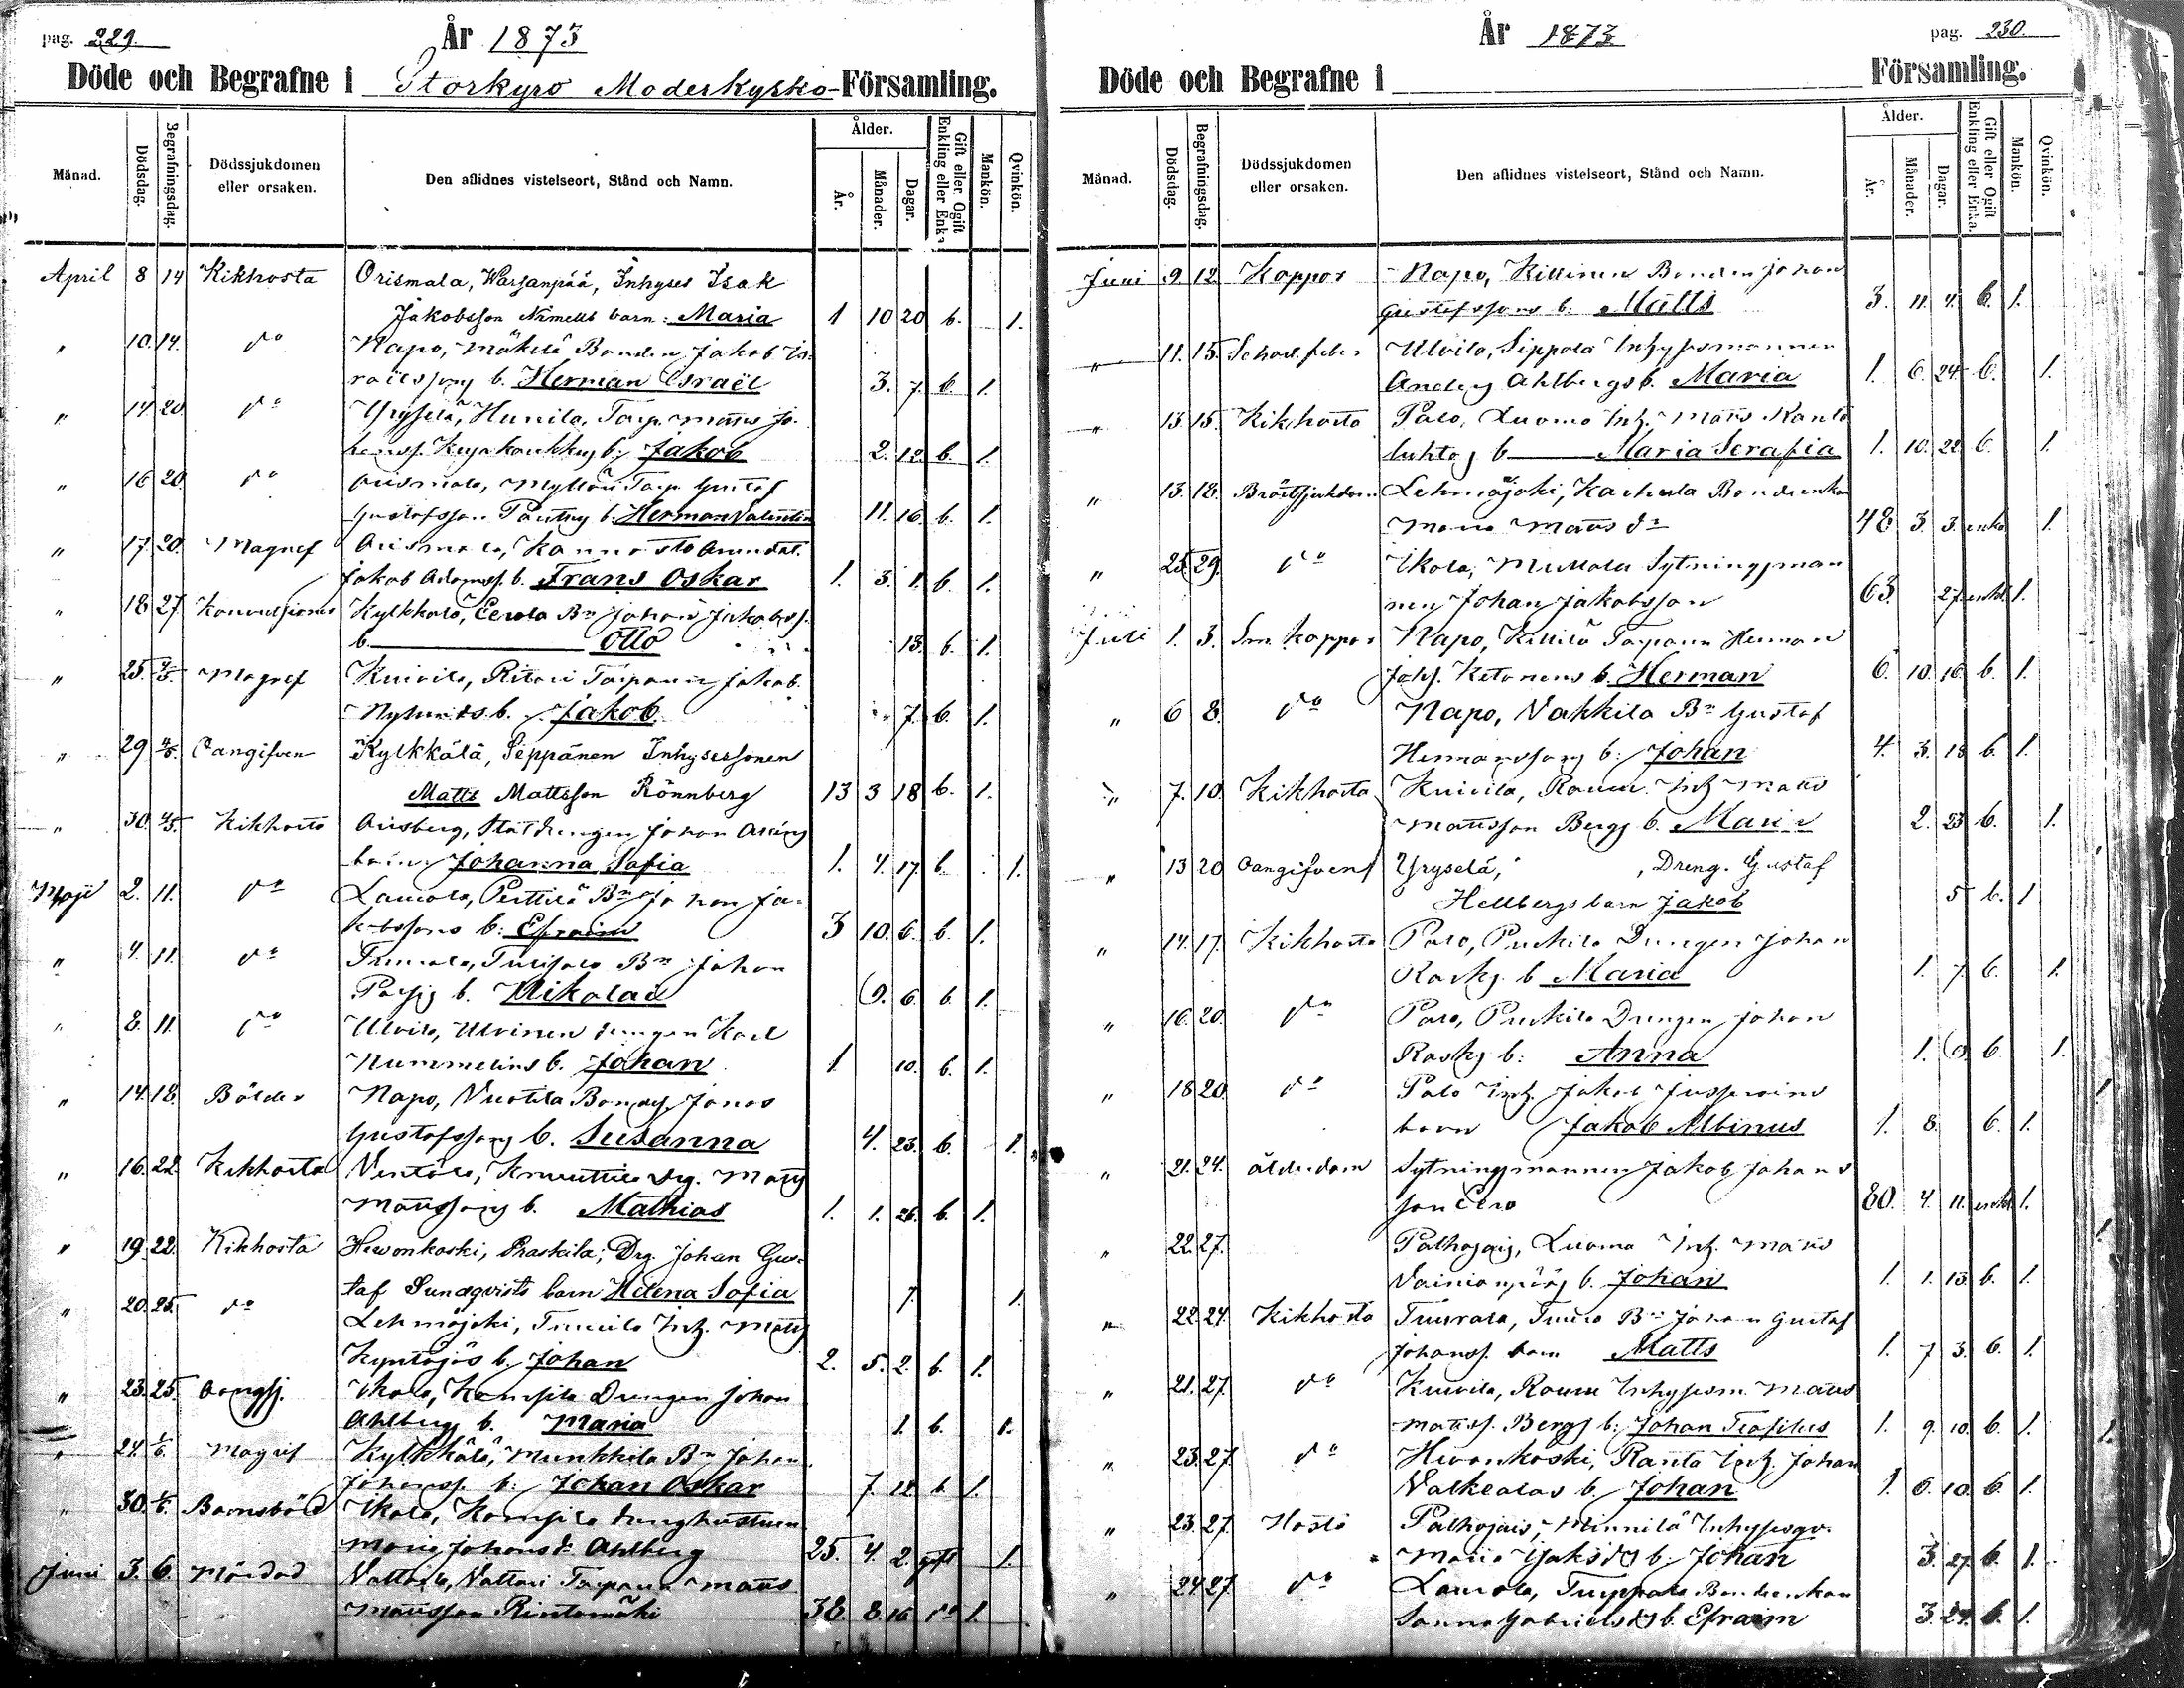 pag. 229.
År 1873
Döde och Begrafne i Storkyro Moderkyrko-Församling.
Månad.
Dödsdag.
Begrafningsdag.
Dödssjukdomen eller orsaken.
Den aflidnes vistelseort, Stånd och Namn.
Ålder.
År.
Månader.
Dagar.
Gift eller Ogift Enkling eller Enka.
Mankön.
Qvinkön.
April 8 14 Kikhosta Orismala, Warsanpää, Inhyses Isak
Jakobsson Nimells barn: Maria 1 10 20 b. 1.
" 10. 14. do Napo, Mäkilä Bonden Jakob Is-
raelssons b. Herman Israël 3. 7. b. 1.
" 14 20 do Yryselä, Hunila, Torp. Matts Jo-
hanss. b. Jakob 2. 12. b. 1.
" 16 20. do Orismala, Torp. Gustaf
Gustafsson b. Herman Valentin 11. 16. b. 1.
" 17. 20. Magref Orismala, Kannosto
Jakob Adamss. b. Frans Oskar 1. 3. 1. b. 1.
" 18 27. Konvulsioner Kylkkälä, Eerola Bn Johan Jakobss.
b. Otto 13. b. 1.
" 25. 4/5. Magref Kuivila, Ritari Torparen Jakob
Nylunds b. Jakob 7. b. 1.
" 29 4/5. Oangifven Kylkkälä, Seppänen Inhysessonen
Matts Mattsson Rönnberg 13 3 18 b. 1.
" 30. 4/5. Kikhosta Orisberg, Statdrengen Johan
barn Johanna Sofia 1. 4. 17. b. 1.
Maji 2. 11. do Laurola, Perttilä Bn Johan Ja-
kobssons b: Efraim 3 10. 6. b. 1.
" 4. 11. do Tuurala, Bn Johan
b. Nikolai 9. 6. b. 1.
" 8. 11. do Ulvila, Ulvinen drengen Karl
Nummelins b. Johan 1 10. b. 1.
" 14. 18. Bölder Napo, Vuotila Bondes. Jonas
Gustafssons b. Susanna 4. 23. b. 1.
" 16. 22. Kikhosta Ventälä, Knuuttila Dg. Matts
Mattssons b. Mathias 1. 1. 26. b. 1.
" 19. 22. Kikhosta Hewonkoski, Praskila; Drg. Johan Gus-
taf Sundqvists barn Helena Sofia 7. 1.
" 20. 25. do Lehmäjoki, Tuurila Inh. Matts
b. Johan 2. 5. 2. b. 1.
" 23. 25. Ikola, Kempila Drengen Johan
Ahlbergs b. Maria 1. b. 1.
" 24. 1/6. Magref Kylkkälä, Munkkila Bn Johan
Johanss. b. Johan Oskar 7. 12. b. 1.
" 30. 1/6. Barnsbörd Ikola, Kempila drenghustrun
Maria Johansdr Ahlberg 25. 4. 2. gift 1.
Juni 3. 6. Mördad Vattari Torparen Matts
Mattsson Rintamäki 38. 8. 16 do 1.
År 1873
pag. 230.
Döde och Begrafne i Församling.
Månad.
Dödsdag.
Begrafningsdag.
Dödssjukdomen eller orsaken.
Den aflidnes vistelseort, Stånd och Namn.
Ålder.
År.
Månader.
Dagar.
Gift eller Ogift Enkling eller Enka.
Mankön.
Qvinkön.
Juni 9. 12. Koppor Napo, Killinen Bonden Johan
Gustafssons b: Matts 3. 11. 4. b. 1.
" 11. 15. Scharl. feber Ulvila, Sippola Inhysesmannen
Anders Ahlbergs b. Maria 1. 6. 24. b. 1.
" 13. 15. Kikhosta Palo, Luoma Inh. Matts Kanto
luhtas b Maria Serafia 1. 10. 22. b. 1.
" 13. 18. Bröstsjukdom Lehmäjoki, Bondeenkan
Maria Matts dr 48 3. 3. enka 1.
" 25. 29. do Ikola, Mullola Sytningsman
nen Johan Jakobsson 63. 27. enkl. 1.
Juli 1. 3. Sm. koppor Napo, Killilä Torparen Herman
Johs. Ketonens b. Herman 6. 10. 16. b. 1.
" 6 8. do Napo, Vakkila Bn Gustaf
Hermanssons b: Johan 4. 3. 18 b. 1.
" 7. 10. Kikhosta Kuivila, Rouru Inh. Matts
Mattsson Bergs b. Maria 2. 23 b. 1.
" 13 20 Oangifvens Yryselä, , Dreng. Gustaf
Hellbergs barn Jakob 5 b. 1
" 14. 17. Kikhosta Palo, Puskila Drengen Johan
Rasks b Maria 1. 7. b. 1.
" 16. 20. do Palo, Puskila Drengen Johan
Rasks b: Anna 1. 9. b 1.
" 18 20. do Palo Inh. Jakob
barn Jakob Albinus 1. 8. b. 1.
" 21. 24. ålderdom Sytningsmannen Jakob Johans
son Eero 80. 4. 11. enkl. 1.
" 22. 27. Palhojais, Luoma Inh. Matts
Vainionpääs b. Johan 1. 1. 13. b. 1.
" 22. 24. Kikhosta Tuurala, Bn Johan Gustaf
Johanss. barn Matts 1. 7 3. b. 1.
" 21. 27. do Kuivila, Rouru Inhysesm. Matts
Matss. Bergs b: Johan Teofilus 1. 9. 10. b. 1.
" 23. 27. do Hevonkoski, Ranta Inh. Johan
Valkealas b. Johan 1. 6. 10. b. 1.
" 23. 27. Hosta Palhojais, Minnilä Inhysesqv.
Maria b. Johan 3. 27. b. 1.
" 24 27. do Laurola, Bondeenkan
Sanna Gabrielsdrs b. Efraim 3. 24. b. 1.